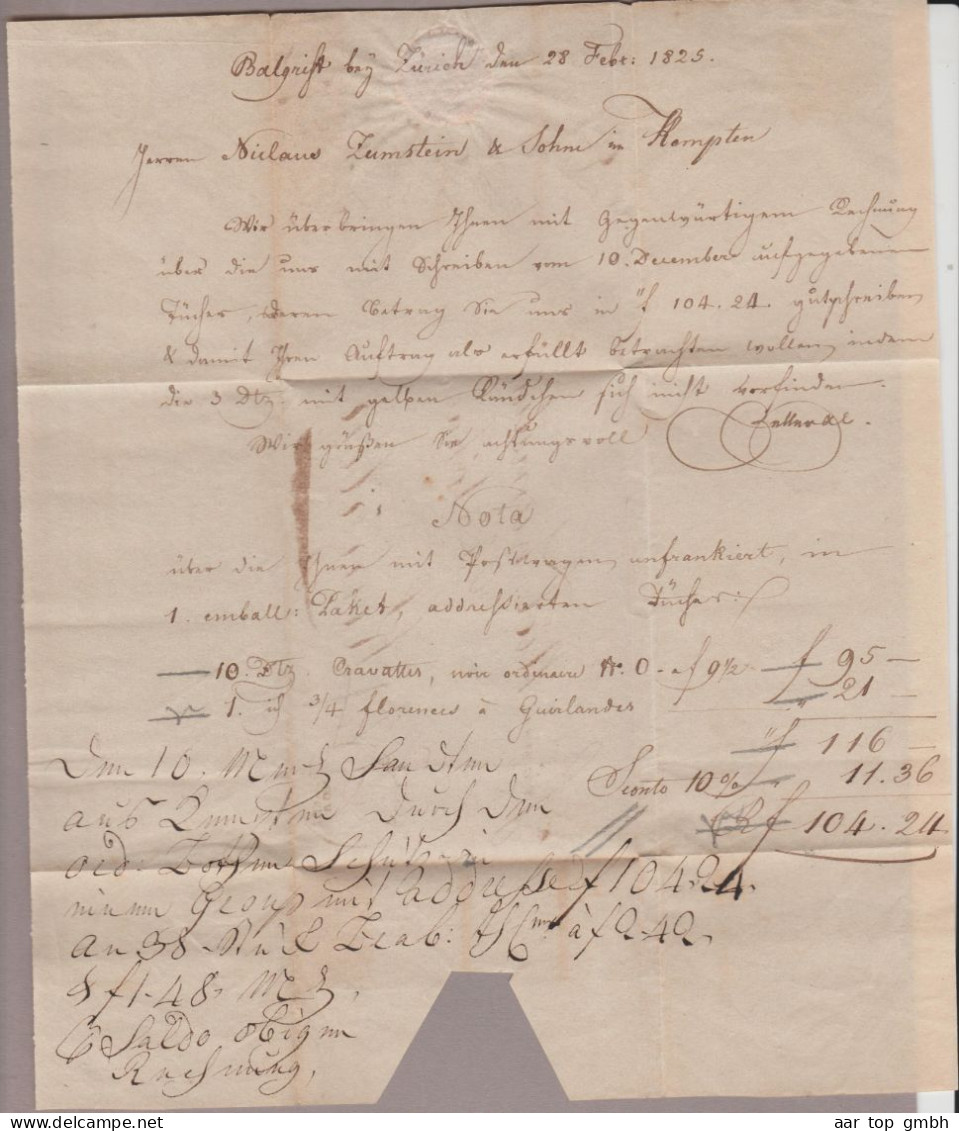 Balgrist bey Zürich den 28 Febr: 1825.
Herren Niclaus Zumstein & Sohn in Kempten
Wir überbringen Ihnen mit Gegenwärtigem Rechnung
über die uns mit Schreiben vom 10. December aufgegebenen
Tücher, deren Betrag Sie uns in f 104.24. gutschreiben
& damit Ihren Auftrag als erfüllt betrachten wollen, indem
die 3 Dtz. mit gelben Rändchen sich nicht vorfinden.
Wir grüßen Sie achtungsvoll
Zeller &C.
Nota
über die Ihnen mit Postwagen unfrankiert, in
1. emball: Paket, addressierten Tücher:
10. Dtz. Cravattes, noir ordinaire N. 0 - f 9½ f 95 —
1. 3/4 florences à Guirlandes 21 —
f 116 —
Sconto 10 % 11.36
f 104.24
Den 10. Merz Sandten
aus Kempten durch den
Bothen
einen Group mit Addresse f 104 24.
An 38 Stück Brab: à f 2.42
& f 1.48
Saldo obigen
Rechnung,
aar top gmbh